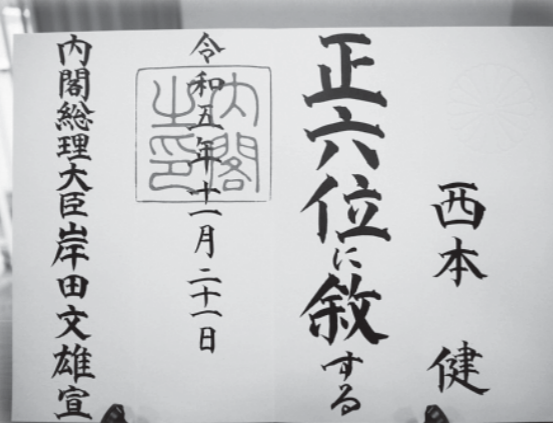 西本 健
正六位に敘する
令和五年十一月二十一日
内閣之印
内閣総理大臣岸田文雄宣